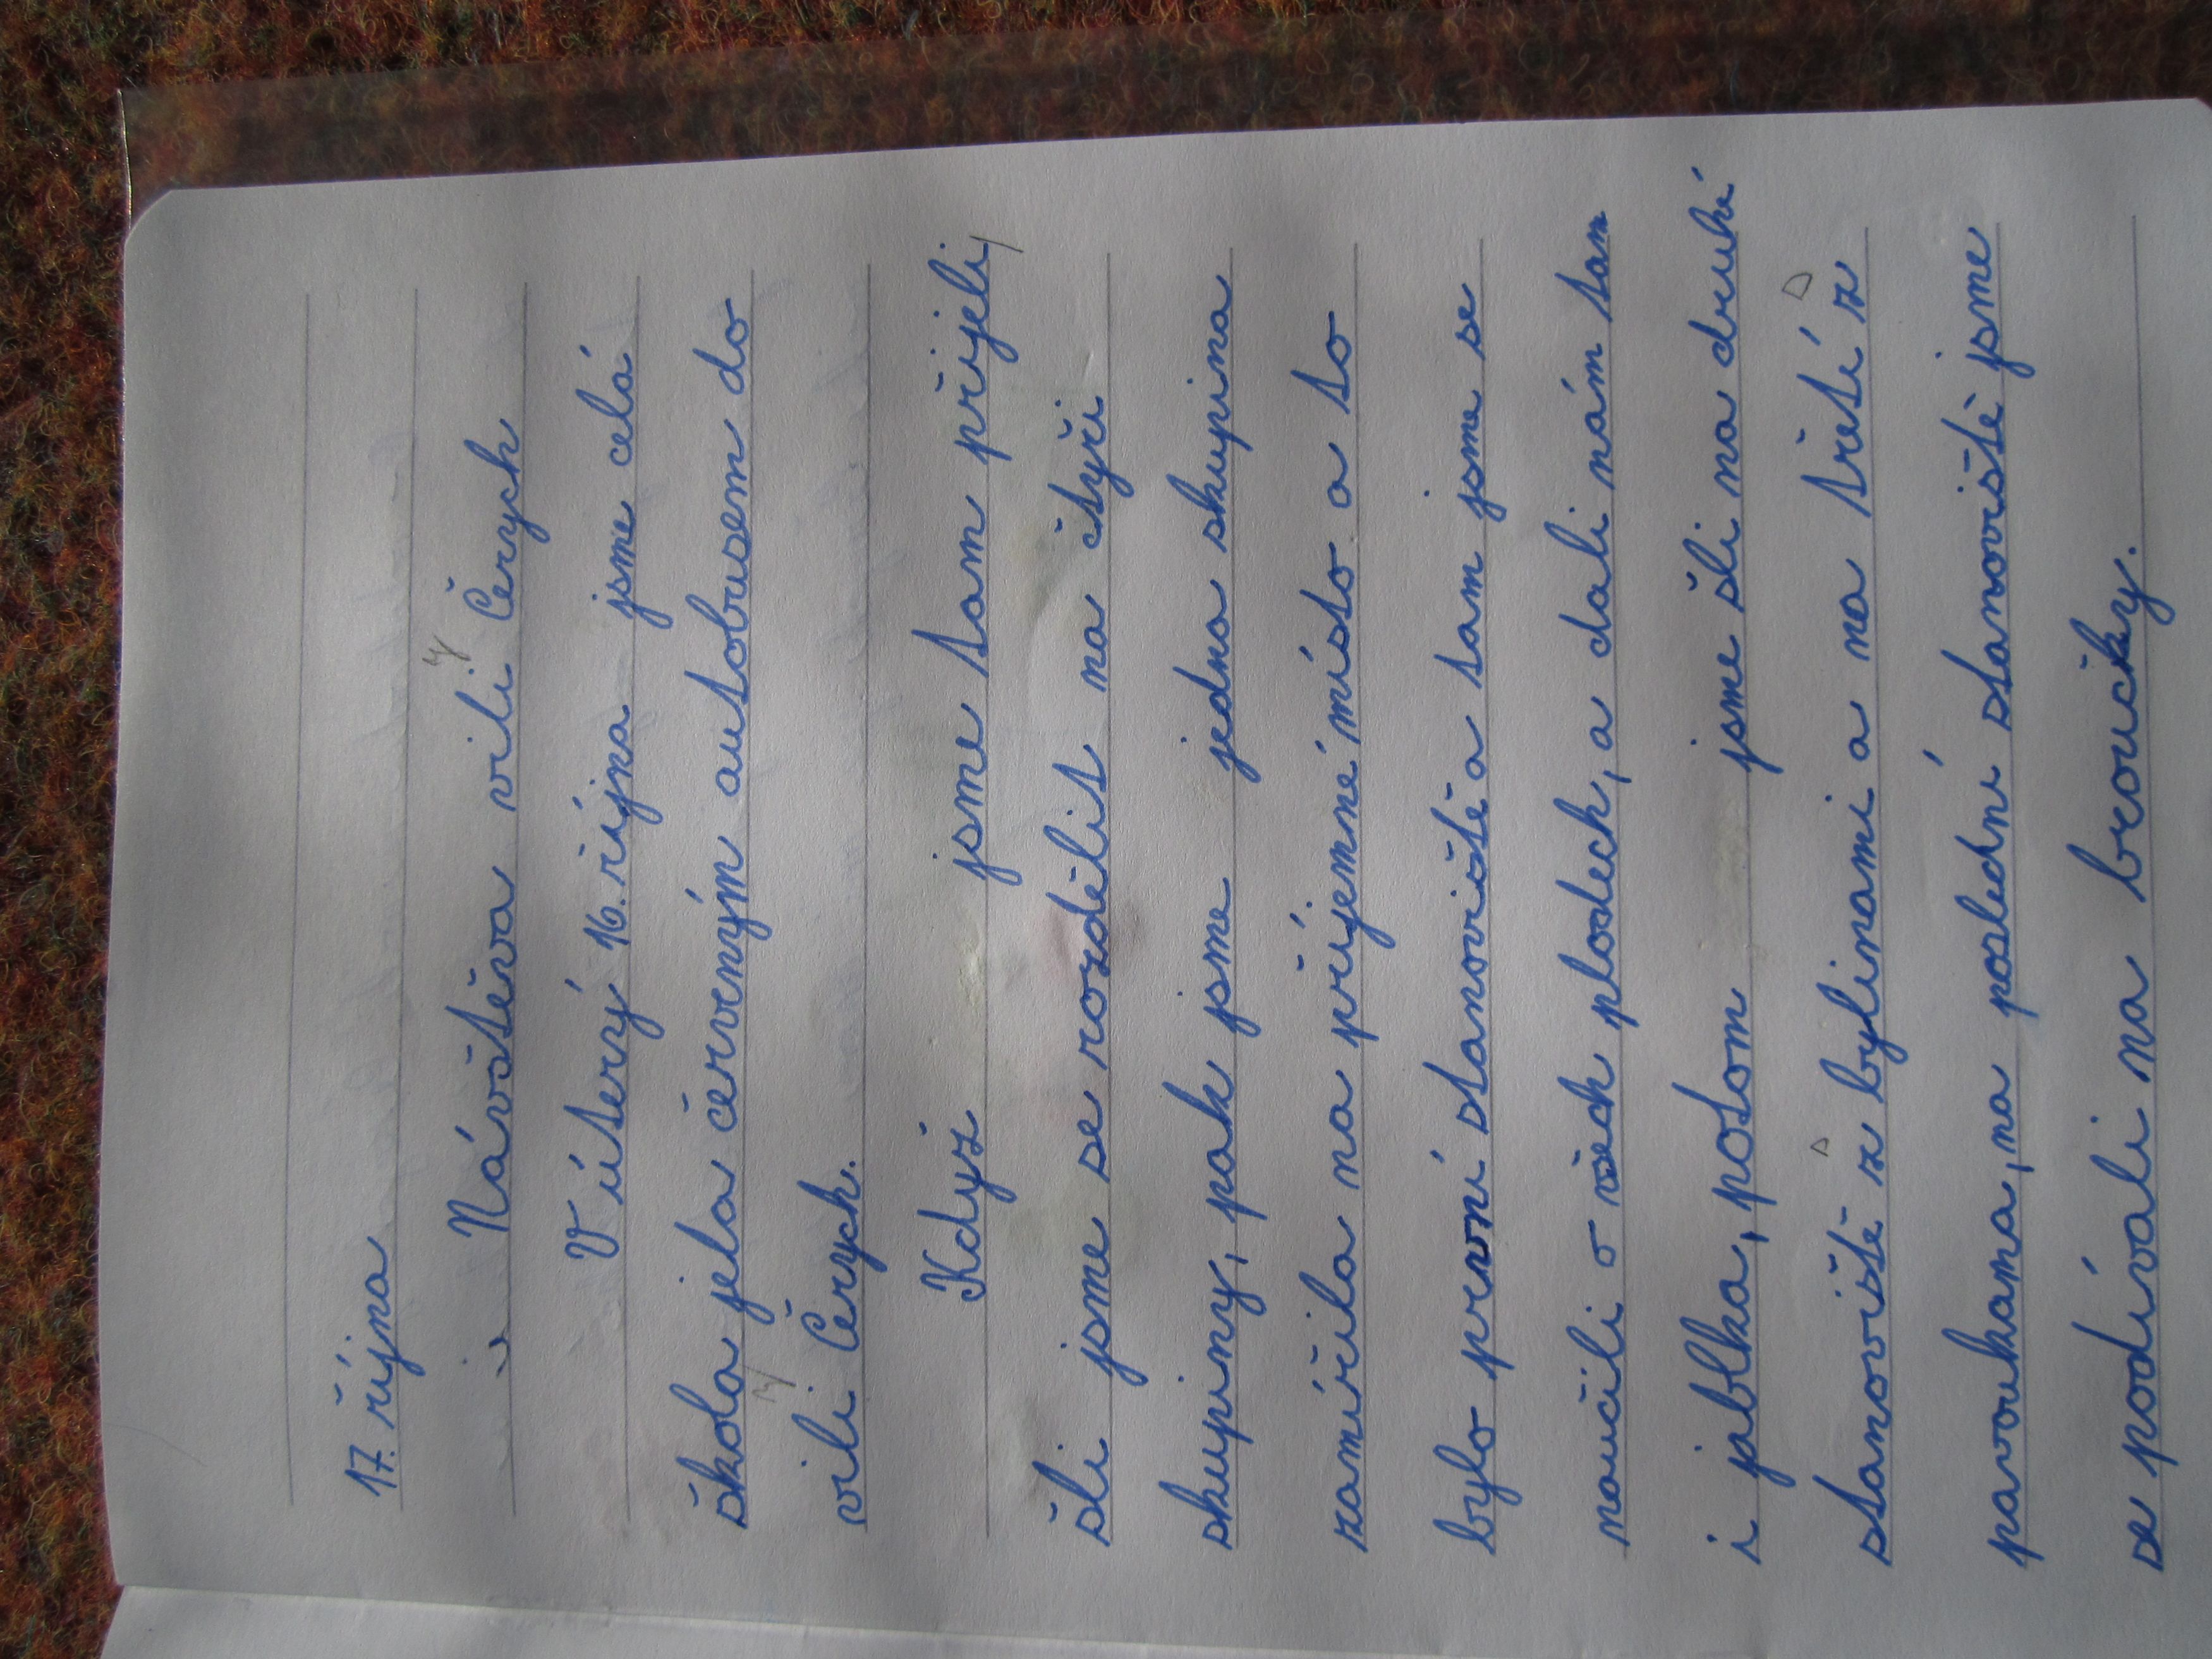 17. října
Návštěva vili Čerych
V úterý 16. října jsme celá
škola jela červeným autobusem do
vili Čerych.
Když jsme tam přijeli,
šli jsme se rozdělit na čtyři
skupiny, pak jsme jedna skupina
zamířila na příjemné místo a to
bylo první stanoviště a tam jsme se
naučili o všech plodech, a dali nám tam
i jablka, potom jsme šli na druhé
stanoviště z bylinami a na třetí z
pavoukama, na poslední stanoviště jsme
se podívali na broučky.